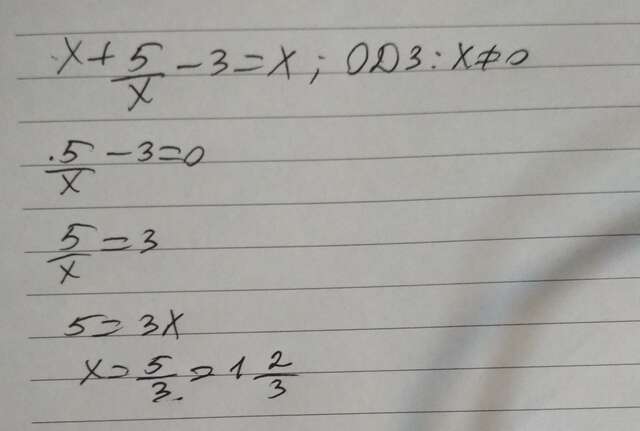 x + 5/x - 3 = x ; ОДЗ : x ≠ 0
5/x - 3 = 0
5/x = 3
5 = 3x
x = 5/3 = 1 2/3